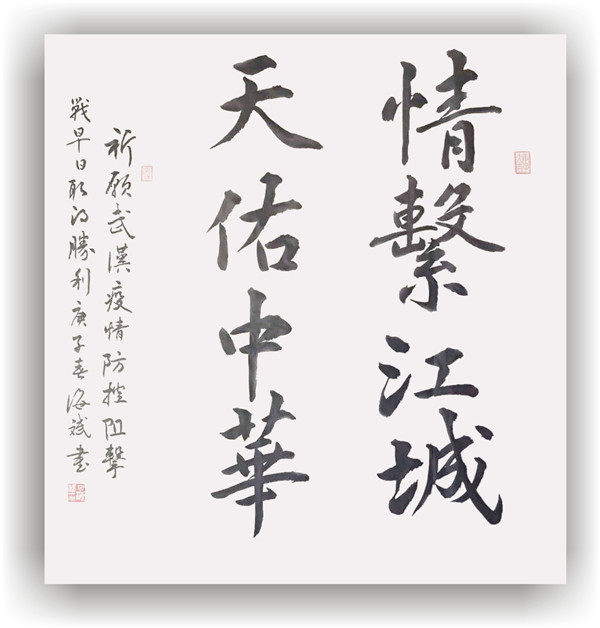 情繫江城
天佑中華
祈願武漢疫情防控阻擊
戰早日取得勝利庚子春海斌書